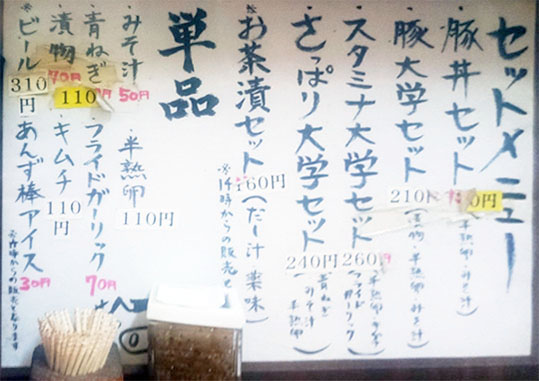 セットメニュー
・豚丼セット
0円
(味噌汁・半熟卵・みそ汁)
・豚大学セット
210
(漬物・半熟卵・みそ汁)
・スタミナ大学セット
260
フライドガーリック
・さっぱり大学セット
240円
青ねぎ
みそ汁
半熟卵
お茶漬セット
160円
(だし汁 薬味)
※14時からの販売
単品
・みそ汁
50円
・半熟卵
110円
・青ねぎ
110
・フライドガーリック
70円
・漬物
70円
・キムチ
110円
ビール
310円
あんず棒アイス
30円